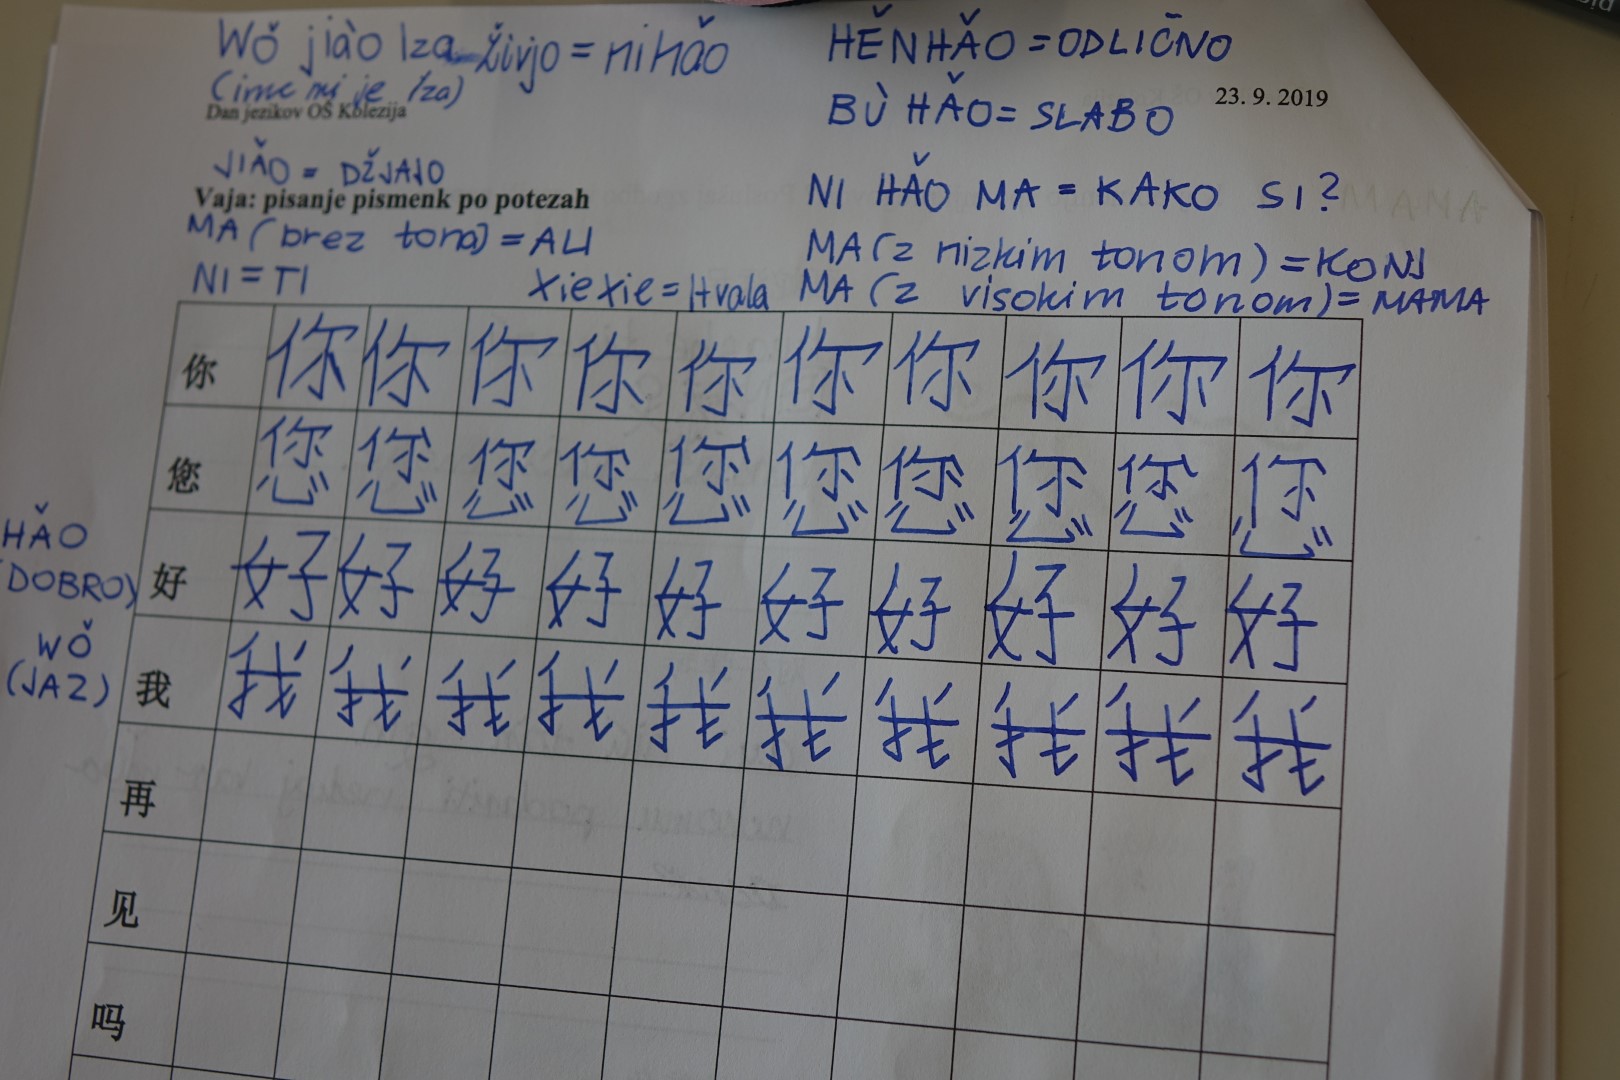 Wǒ jiào Iza živjo = ni hǎo
(ime mi je Iza)
Dan jezikov OŠ Kolezija
JIǍO = DŽJAJO
Vaja: pisanje pismenk po potezah
MA (brez tona) = ALI
NI = TI
xiexie = Hvala
HĚNHǍO = ODLIČNO
23. 9. 2019
BÙ HǍO = SLABO
NI HǍO MA = KAKO SI?
MA (z nizkim tonom) = KONJ
MA (z visokim tonom) = MAMA
你 你 你 你 你 你 你 你 你 你 你
您 您 您 您 您 您 您 您 您 您 您
HǍO
(DOBRO)
好 好 好 好 好 好 好 好 好 好 好
WǑ
(JAZ)
我 我 我 我 我 我 我 我 我 我 我
再
见
吗